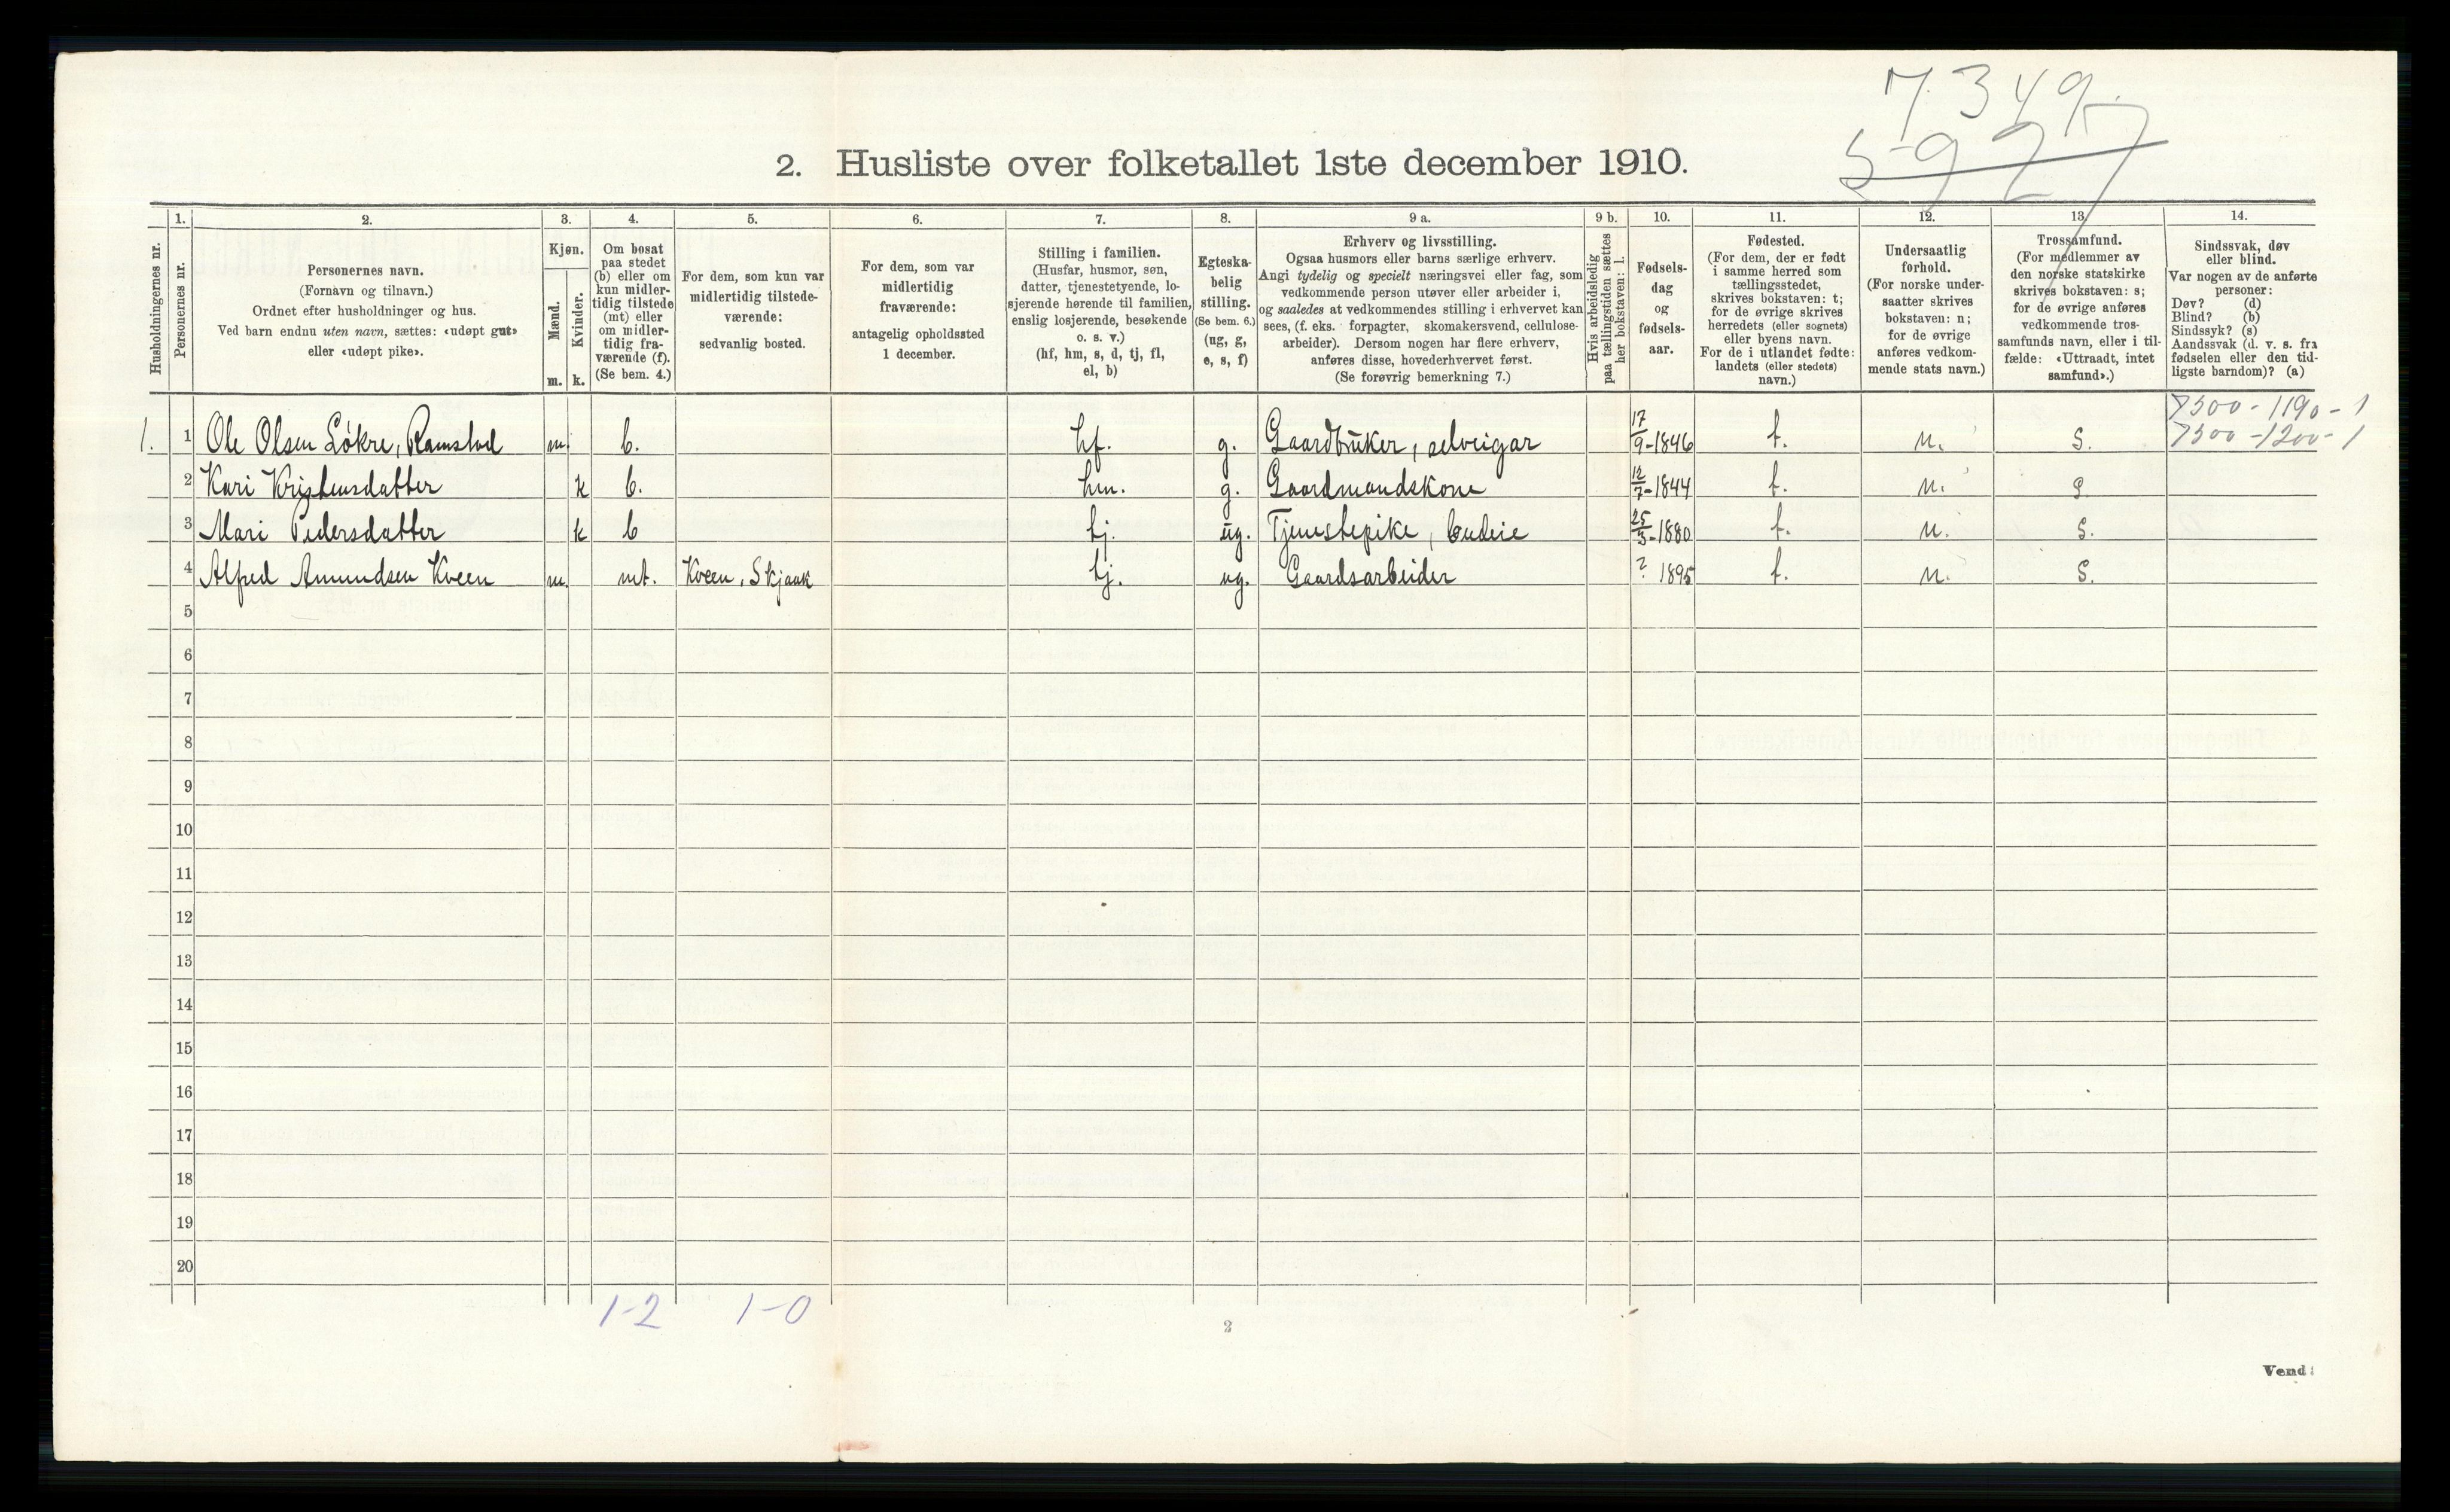 7349
5927
2. Husliste over folketallet 1ste december 1910.
Husholdningernes nr.
1. Personernes nr.
2. Personernes navn.
(Fornavn og tilnavn.)
Ordnet efter husholdninger og hus.
Ved barn endnu uten navn, sættes: «udøpt gut»
eller «udøpt pike».
3. Kjøn.
Mænd. m.
Kvinder. k.
4. Om bosat
paa stedet
(b) eller om
kun midler-
tidig tilstede
(mt) eller
om midler-
tidig fra-
værende (f).
(Se bem. 4.)
5. For dem, som kun var
midlertidig tilstede-
værende:
sedvanlig bosted.
6. For dem, som var
midlertidig
fraværende:
antagelig opholdssted
1 december.
7. Stilling i familien.
(Husfar, husmor, søn,
datter, tjenestetyende, lo-
sjerende hørende til familien,
enslig losjerende, besøkende
o. s. v.)
(hf, hm, s, d, tj, fl,
el, b)
8. Egteska-
belig
stilling.
(Se bem. 6.)
(ug, g,
e, s, f)
9 a. Erhverv og livsstilling.
Ogsaa husmors eller barns særlige erhverv.
Angi tydelig og specielt næringsvei eller fag, som
vedkommende person utøver eller arbeider i,
og saaledes at vedkommendes stilling i erhvervet kan
sees, (f. eks. forpagter, skomakersvend, cellulose-
arbeider). Dersom nogen har flere erhverv,
anføres disse, hovederhvervet først.
(Se forøvrig bemerkning 7.)
9 b. Hvis arbeidsledig
paa tællingstiden sættes
her bokstaven: l.
10. Fødsels-
dag
og
fødsels-
aar.
11. Fødested.
(For dem, der er født
i samme herred som
tællingsstedet,
skrives bokstaven: t;
for de øvrige skrives
herredets (eller sognets)
eller byens navn.
For de i utlandet fødte:
landets (eller stedets)
navn.)
12. Undersaatlig
forhold.
(For norske under-
saatter skrives
bokstaven: n;
for de øvrige
anføres vedkom-
mende stats navn.)
13. Trossamfund.
(For medlemmer av
den norske statskirke
skrives bokstaven: s;
for de øvrige anføres
vedkommende tros-
samfunds navn, eller i til-
fælde: «Uttraadt, intet
samfund».)
14. Sindssvak, døv
eller blind.
Var nogen av de anførte
personer:
Døv? (d)
Blind? (b)
Sindssyk? (s)
Aandssvak (d. v. s. fra
fødselen eller den tid-
ligste barndom)? (a)
7300-1190-1
7300-1200-1
1. 1 Ole Olsen Løkre, Ramstad m. b. hf. g. Gaardbruker, selveigar 17/9-1846 t. n. s.
2 Kari Kristensdatter k b. hm. g. Gaardmandskone 12/7-1844 t. n. s
3 Mari Pedersdatter k b tj. ug. Tjenestepike, budeie 25/3-1880 t. n. s.
4 Alfred Amundsen Kveen m. mt. Kveen, Skjaak tj. ug. Gaardsarbeider ? 1895 t. n. s.
5
6
7
8
9
10
11
12
13
14
15
16
17
18
19
20
1-2 1-0
2
Vend!